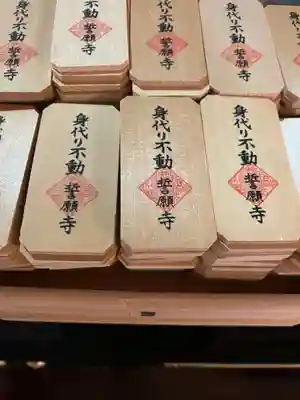 身代り不動
誓願寺
身代り不動
誓願寺
身代り不動
誓願寺
身代り不動
誓願寺
身代り不動
誓願寺
身代り不動
誓願寺
身代り不動
誓願寺